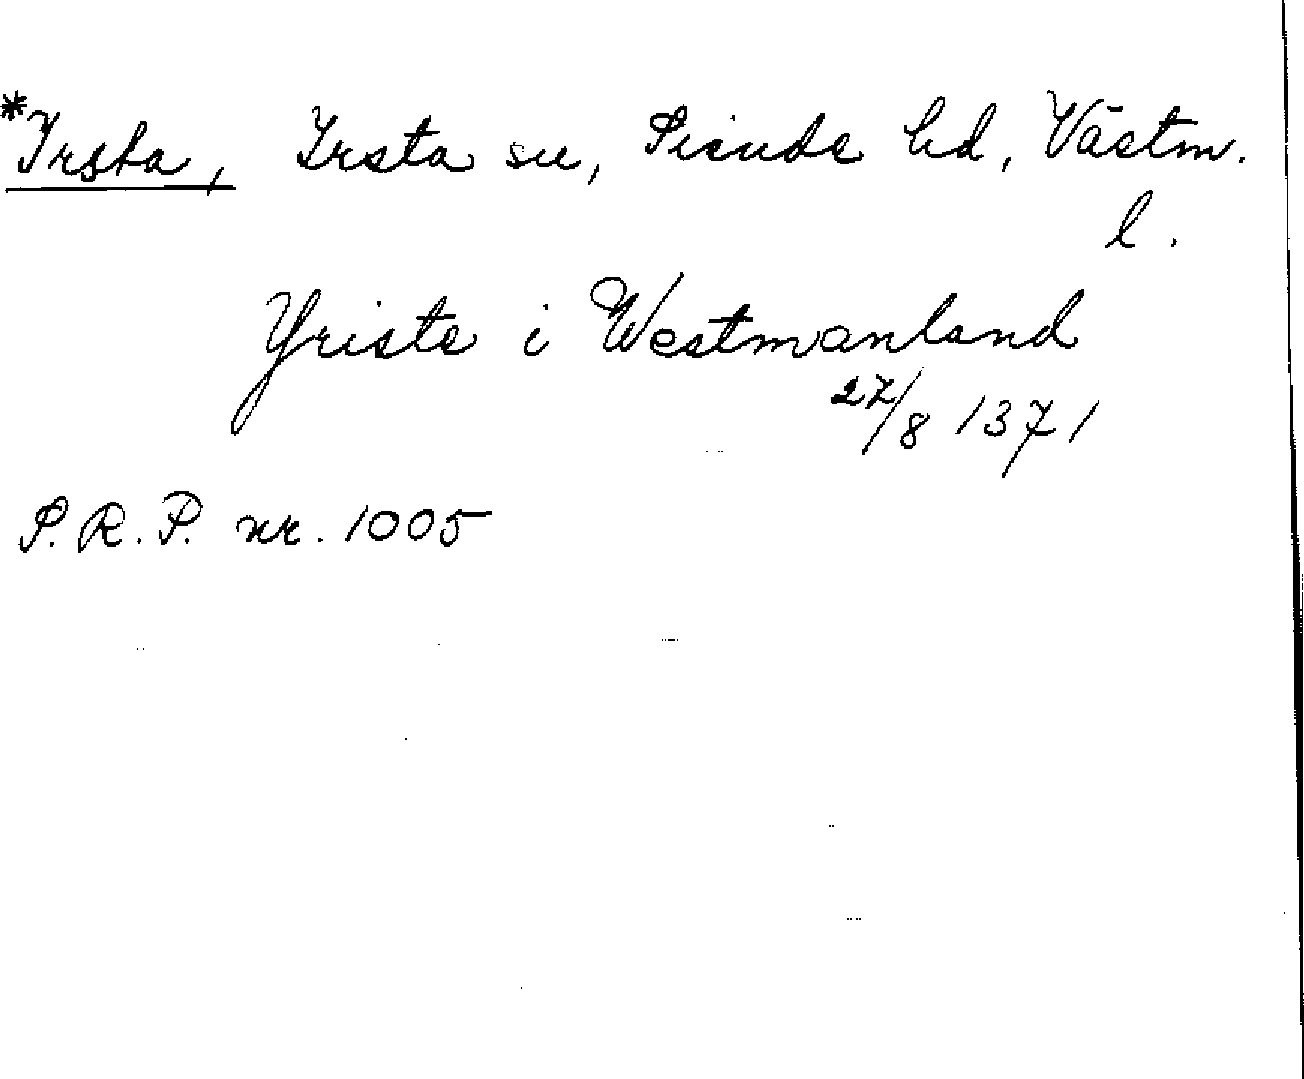 *Irsta, Irsta sn, Siende hd, Västm.
l.
Yriste i Westmanland
27/8 1371
S.R.P. nr. 1005